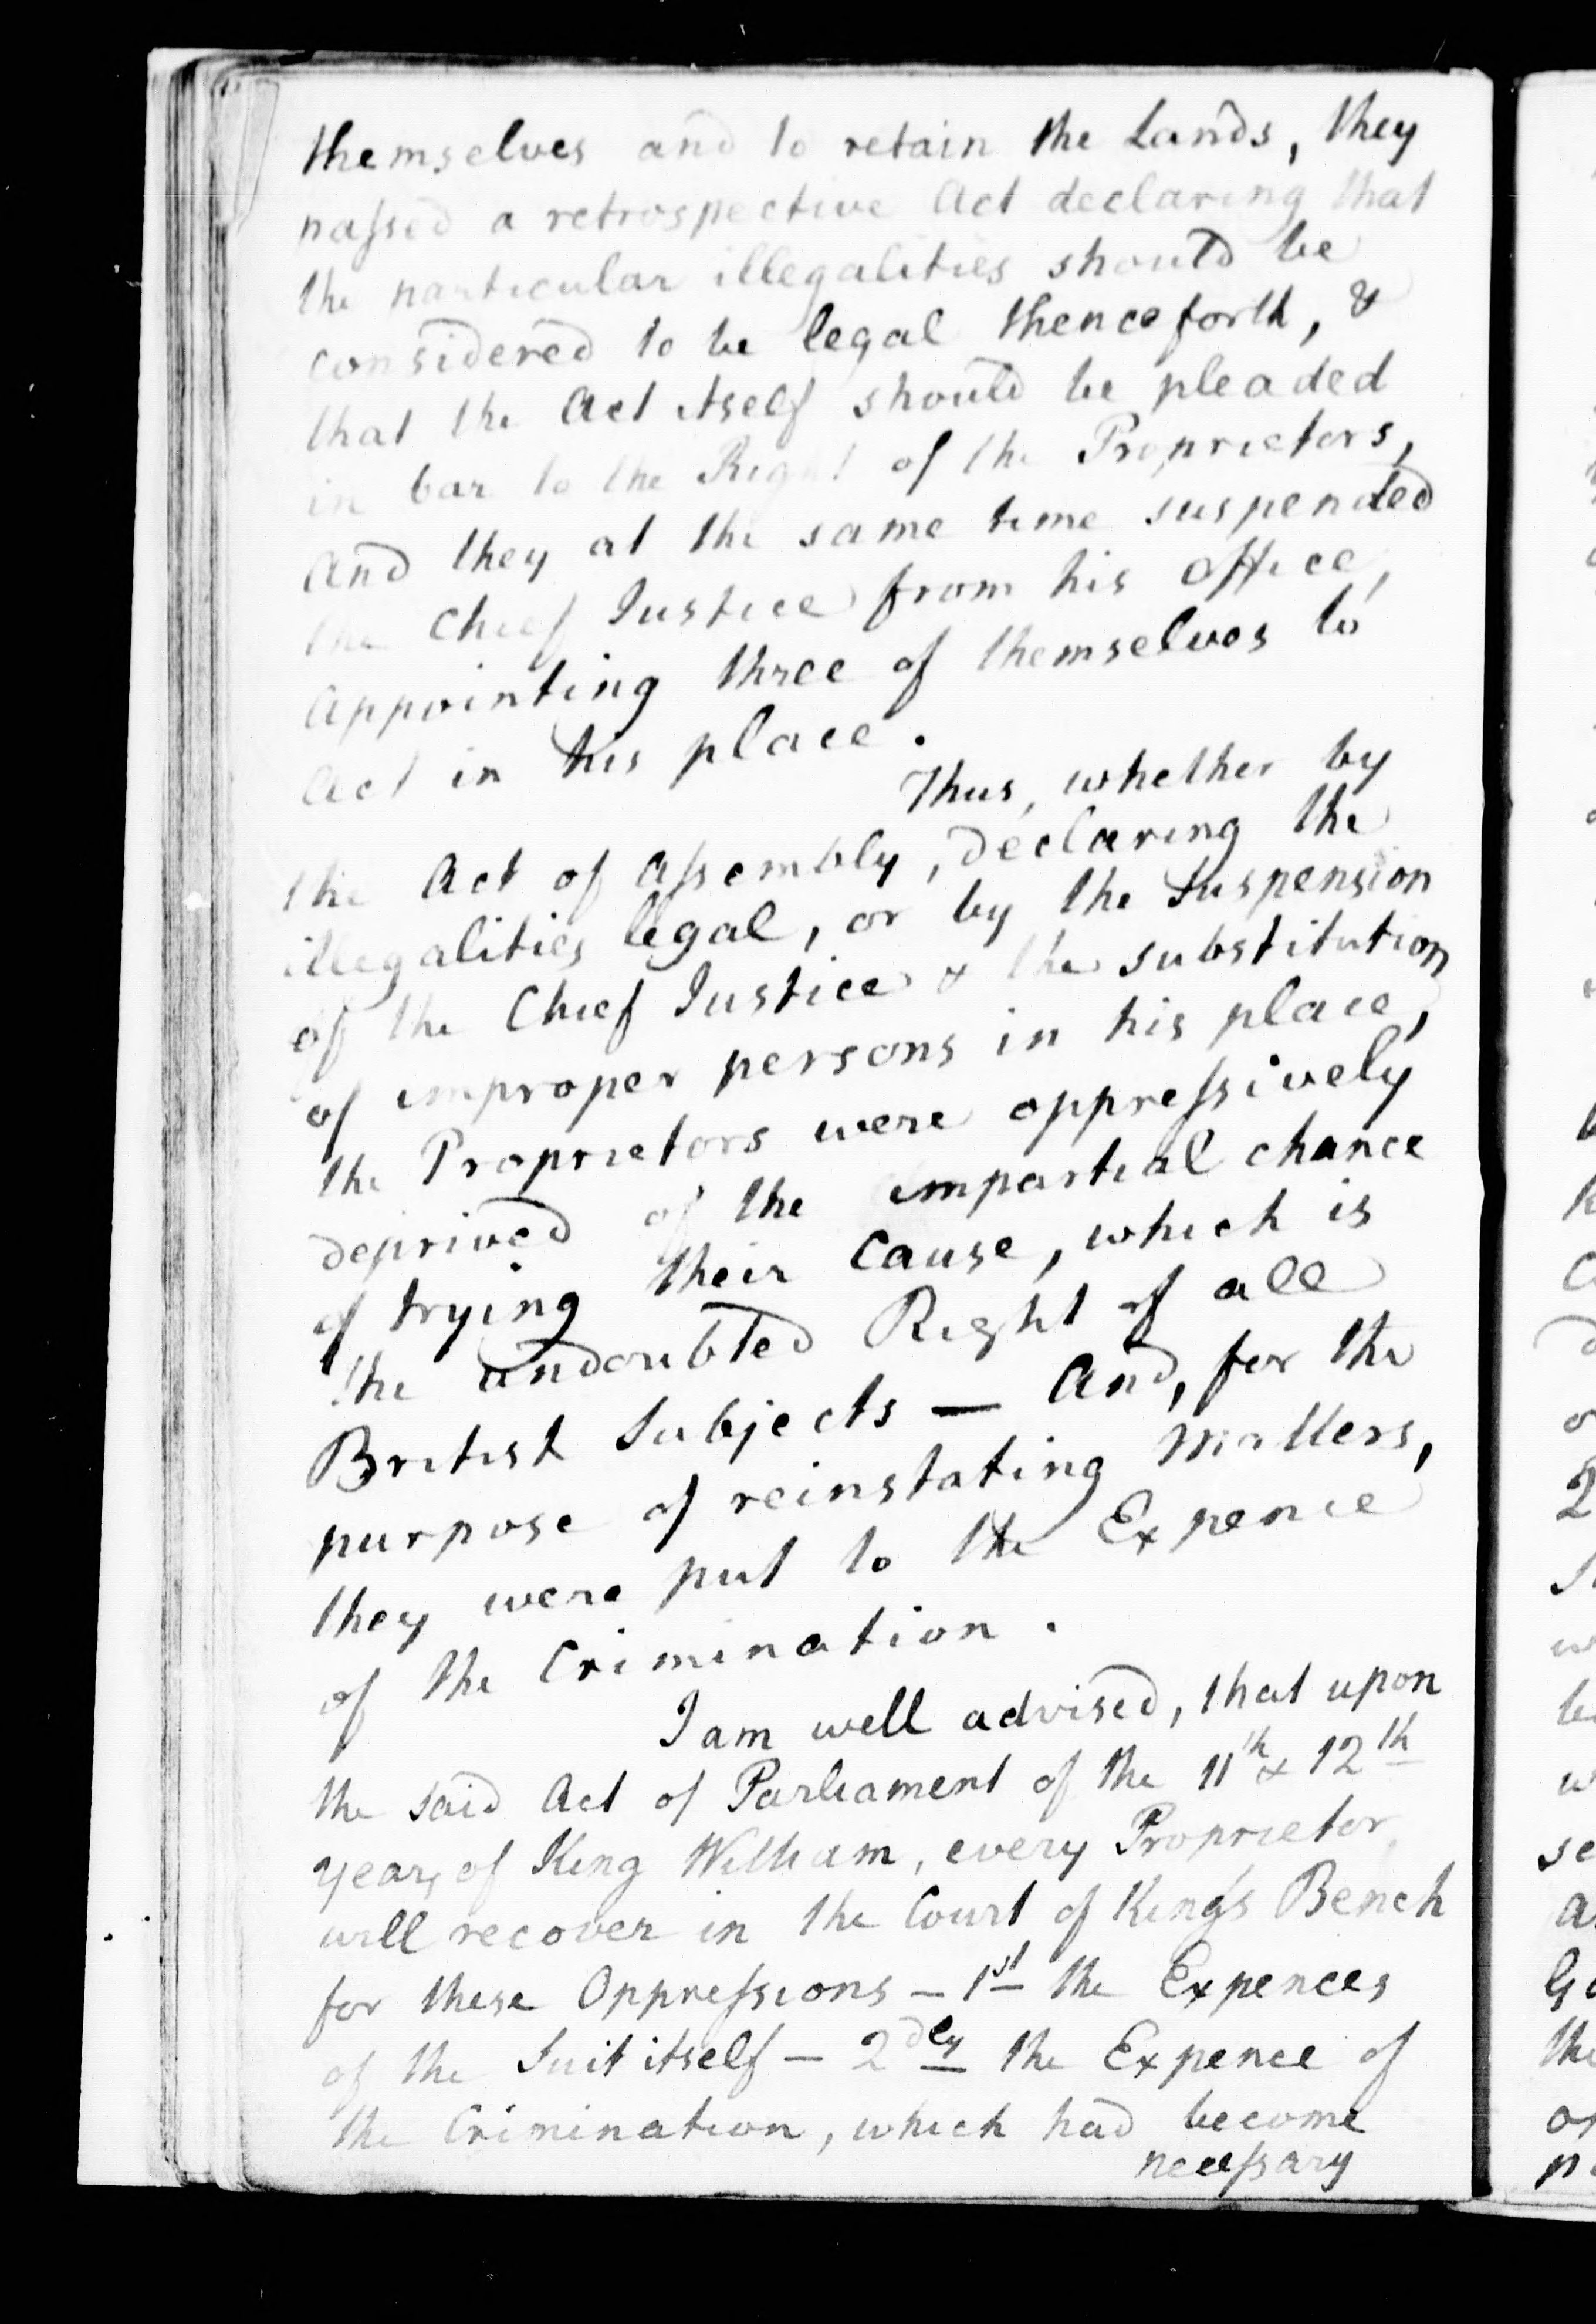 themselves and to retain the Lands, they
passed a retrospective Act declaring that
the particular illegalities should be
considered to be legal thenceforth, &
that the Act itself should be pleaded
in bar to the Right of the Proprietors,
And they at the same time suspended
the Chief Justice from his office,
Appointing three of themselves to
Act in his place.
Thus, whether by
the Act of Assembly, declaring the
illegalities legal, or by the Suspension
of the Chief Justice & the substitution
of improper persons in his place,
the Proprietors were oppressively
deprived of the impartial chance
of trying their Cause, which is
the undoubted Right of all
British Subjects — And, for the
purpose of reinstating Matters,
they were put to the Expence
of the Crimination.
I am well advised, that upon
the said Act of Parliament of the 11th & 12th
year, of King William, every Proprietor
will recover in the Court of King's Bench
for these Oppressions — 1st the Expences
of the Suit itself — 2dly the Expence of
the Crimination, which had become
necessary